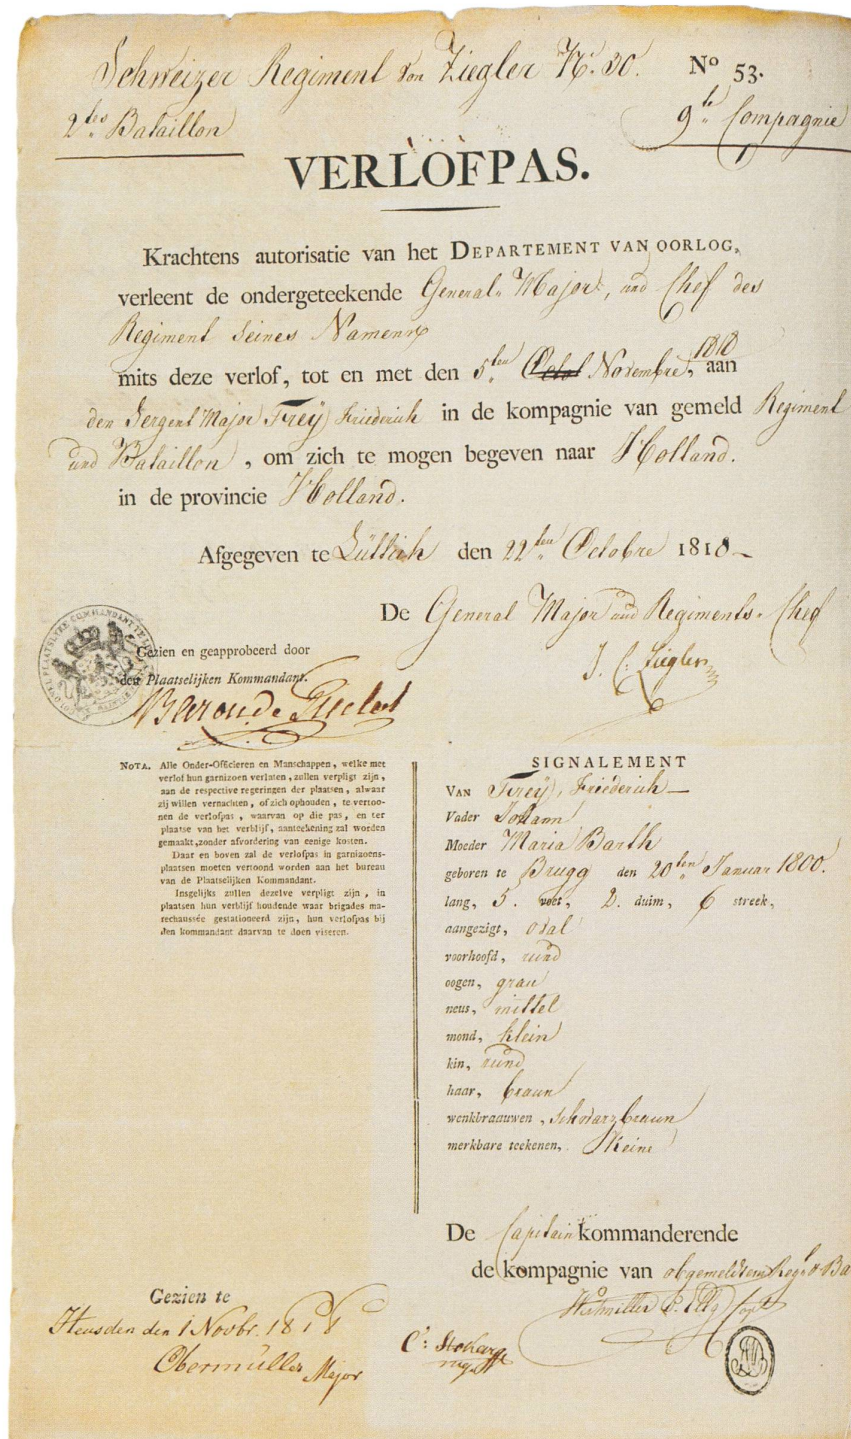 Schweizer Regiment von Ziegler No. 30. No 53.
2tes Bataillon 9te Compagnie
VERLOFPAS.
Krachtens autorisatie van het DEPARTEMENT VAN OORLOG,
verleent de ondergeteekende General-Major, und Chef des
Regiment seines Namens
mits deze verlof, tot en met den 5ten Octob Novembre, 1818 aan
den Sergent Major Freÿ Friederich in de kompagnie van gemeld Regiment
und Bataillon, om zich te mogen begeven naar Holland.
in de provincie Holland.
Afgegeven te Lüttich den 22ten Octobre 1818
De General Major und Regiments-Chef
J. C. Ziegler
Gezien en geapprobeerd door
den Plaatselijken Kommandant.
Baron de
NOTA. Alle Onder-Officieren en Manschappen, welke met
verlof hun garnizoen verlaten, zullen verpligt zijn,
aan de respective regeringen der plaatsen, alwaar
zij willen vernachten, of zich ophouden, te vertoo-
nen de verlofpas, waarvan op die pas, en ter
plaatse van het verblijf, aanteekening zal worden
gemaakt, zonder afvordering van eenige kosten.
Daar en boven zal de verlofpas in garnizoens-
plaatsen moeten vertoond worden aan het bureau
van de Plaatselijken Kommandant.
Insgelijks zullen dezelve verpligt zijn, in
plaatsen hun verblijf houdende waar brigades ma-
rechaussée gestationeerd zijn, hun verlofpas bij
den kommandant daarvan te doen viseren.
SIGNALEMENT
VAN Freÿ, Friederich
Vader Johann
Moeder Maria Barth
geboren te Brugg den 20ten Januar 1800.
lang, 5. voet, 2. duim, 6 streek,
aangezigt, oval
voorhoofd, rund
oogen, grau
neus, mittel
mond, klein
kin, rund
haar, braun
wenkbraauwen, schwarzbraun
merkbare teekenen, Keine
De Capitain kommanderende
de kompagnie van obgemeldtem Regt & Ba
Gezien te
Heusden den 1 Novbr. 1818
Obermüller Major